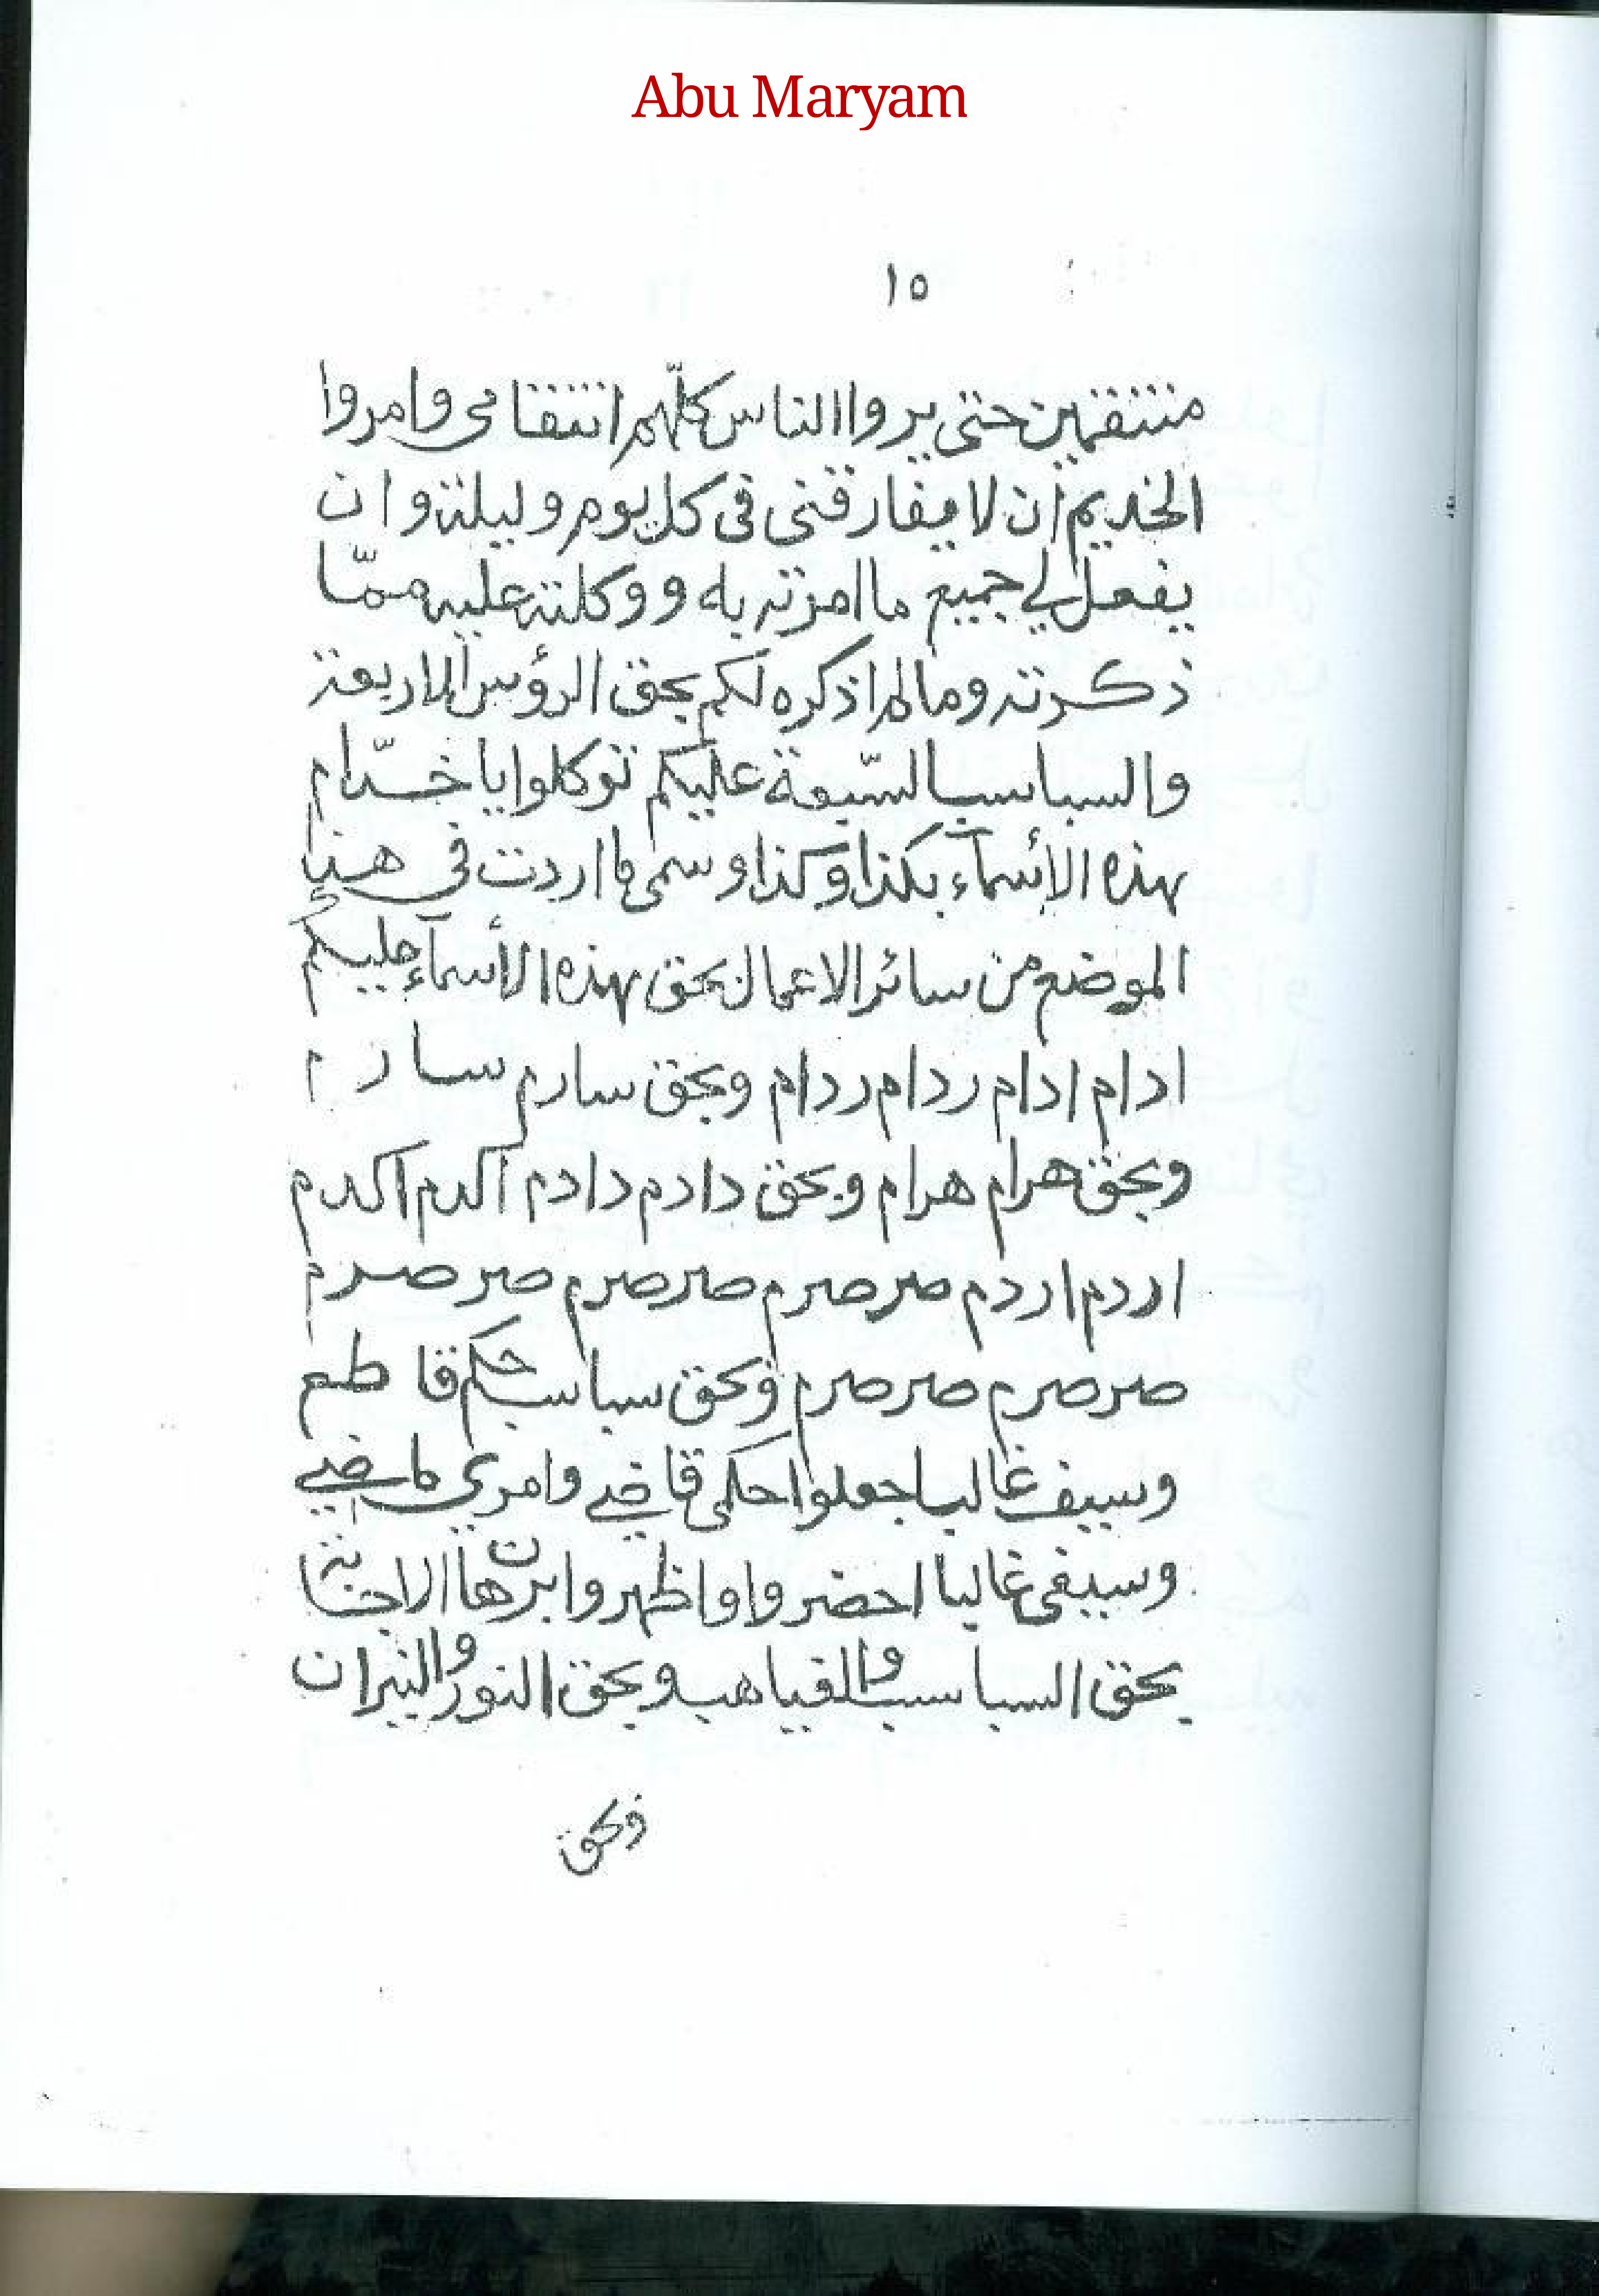 Abu Maryam
١٥
منتقمين حتى يروا الناس كلّهم انتقامى وامروا
الخديم ان لا يفارقنى فى كل يوم وليلة وان
يفعل لي جميع ما امرته به ووكلته عليه ممّا
ذكرته وما لم اذكره لكم بحق الرؤس الاربعة
والسباسب السّبعة عليكم توكلوا يا خدّام
بهذه الأسمآء بكذا وكذا وسمى ما اردت فى هذا
الموضع من سائر الاعمال بحق بهذه الأسمآء عليكم
ادام ادام ردام ردام وبحق سارم سارم
وبحق هرام هرام وبحق دادم دادم اكدم اكدم
اردم اردم صرصرم صرصرم صرصرم
صرصرم صرصرم وبحق سباسب حكم قاطع
وسيف غالب اجعلوا حكمى قاضي وامري ماضي
وسيفى غالبا احضروا واظهروا برهان الاجابة
بحق السباسب والغياهب وبحق النور والنيران
وبحق